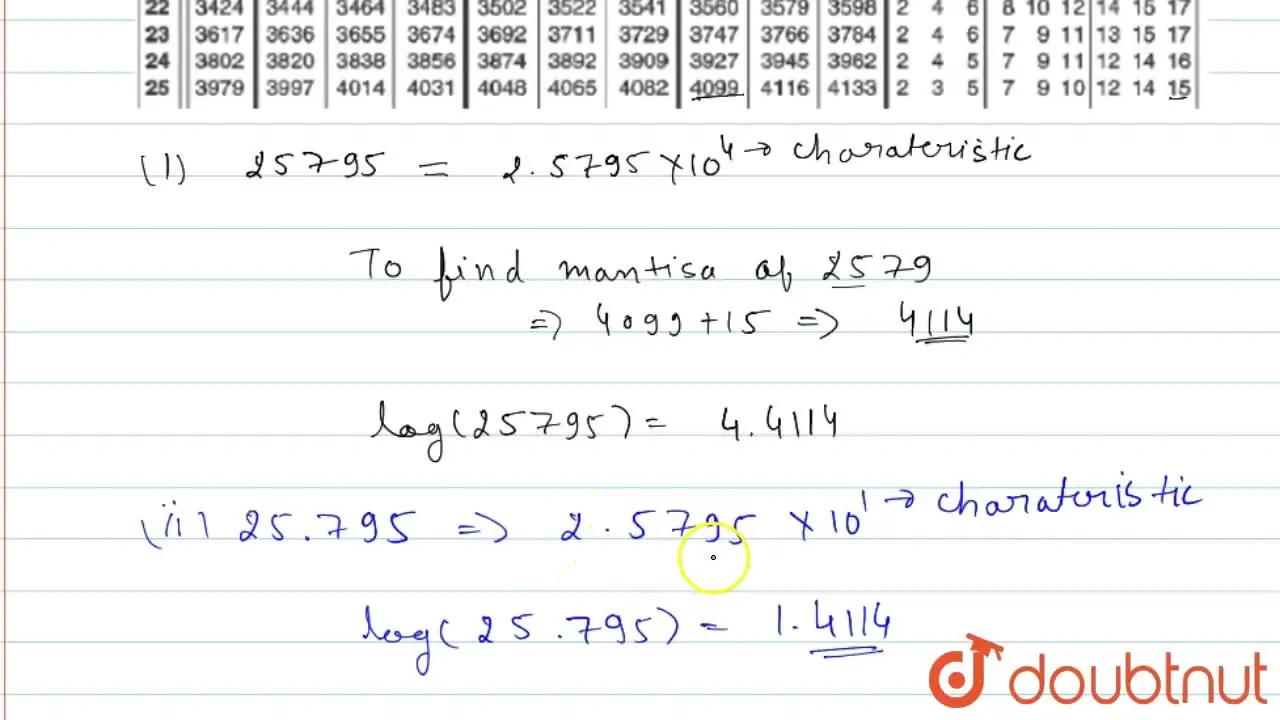 22 3424 3444 3464 3483 3502 3522 3541 3560 3579 3598 2 4 6 8 10 12 14 15 17
23 3617 3636 3655 3674 3692 3711 3729 3747 3766 3784 2 4 6 7 9 11 13 15 17
24 3802 3820 3838 3856 3874 3892 3909 3927 3945 3962 2 4 5 7 9 11 12 14 16
25 3979 3997 4014 4031 4048 4065 4082 4099 4116 4133 2 3 5 7 9 10 12 14 15
(1) 25795 = 2.5795 × 10⁴ → charateristic
To find mantisa of 2579
⇒ 4099 + 15 ⇒ 4114
log(25795) = 4.4114
(ii) 25.795 ⇒ 2.5795 × 10¹ → charateristic
log(25.795) = 1.4114
doubtnut